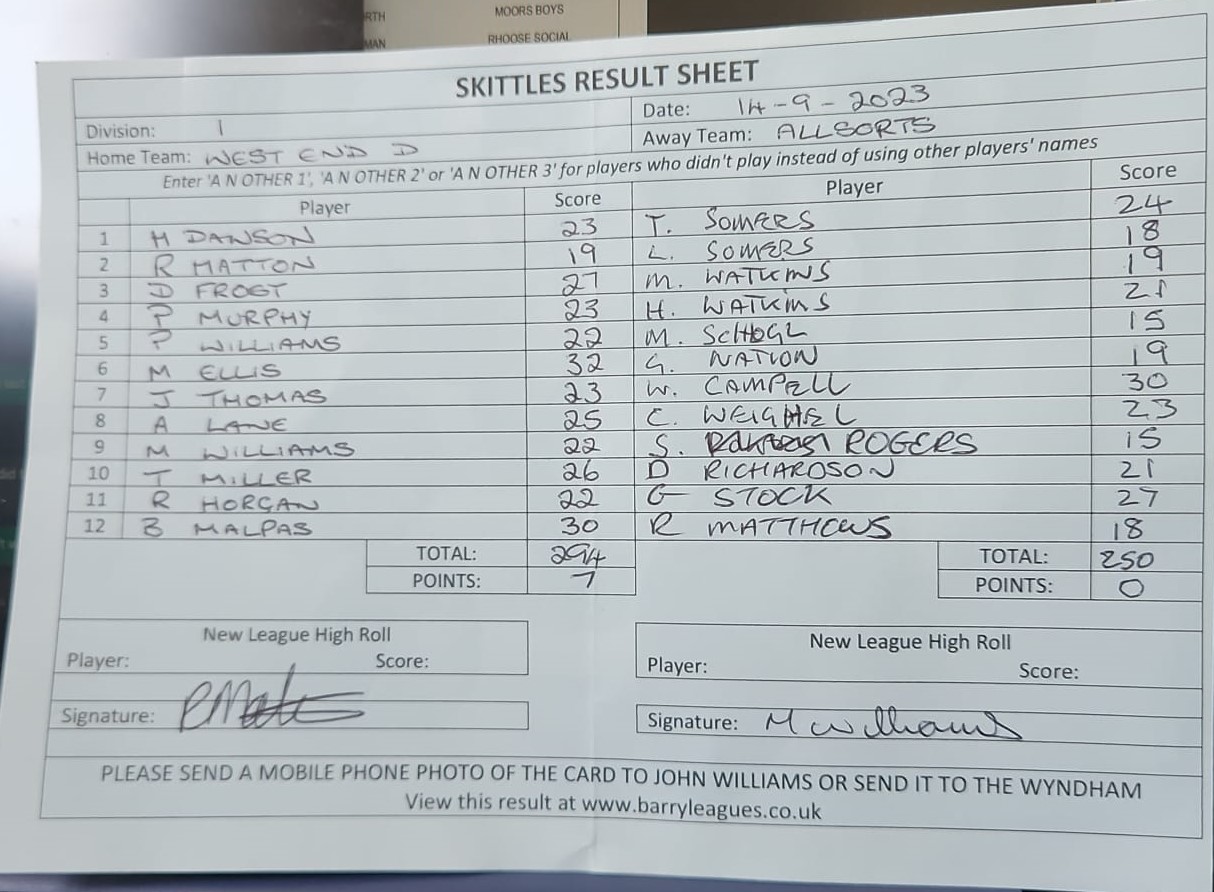 RTH MOORS BOYS
MAN RHOOSE SOCIAL
SKITTLES RESULT SHEET
Division: 1 Date: 14-9-2023
Home Team: WEST END D Away Team: ALLSORTS
Enter 'A N OTHER 1', 'A N OTHER 2' or 'A N OTHER 3' for players who didn't play instead of using other players' names
Player Score Player Score
1 H DAWSON 23 T. SOMERS 24
2 R MATTON 19 L. SOMERS 18
3 D FROST 27 M. WATKINS 19
4 P MURPHY 23 H. WATKINS 21
5 P WILLIAMS 22 M. SCHOGL 15
6 M ELLIS 32 G. NATION 19
7 J THOMAS 23 W. CAMPELL 30
8 A LANE 25 C. WEIGHEL 23
9 M WILLIAMS 22 S. ROGERS 15
10 T MILLER 26 D RICHARDSON 21
11 R HORGAN 22 G STOCK 27
12 B MALPAS 30 R MATTHEWS 18
TOTAL: 294 TOTAL: 250
POINTS: 7 POINTS: 0
New League High Roll New League High Roll
Player: Score: Player: Score:
Signature: Signature: M Williams
PLEASE SEND A MOBILE PHONE PHOTO OF THE CARD TO JOHN WILLIAMS OR SEND IT TO THE WYNDHAM
View this result at www.barryleagues.co.uk